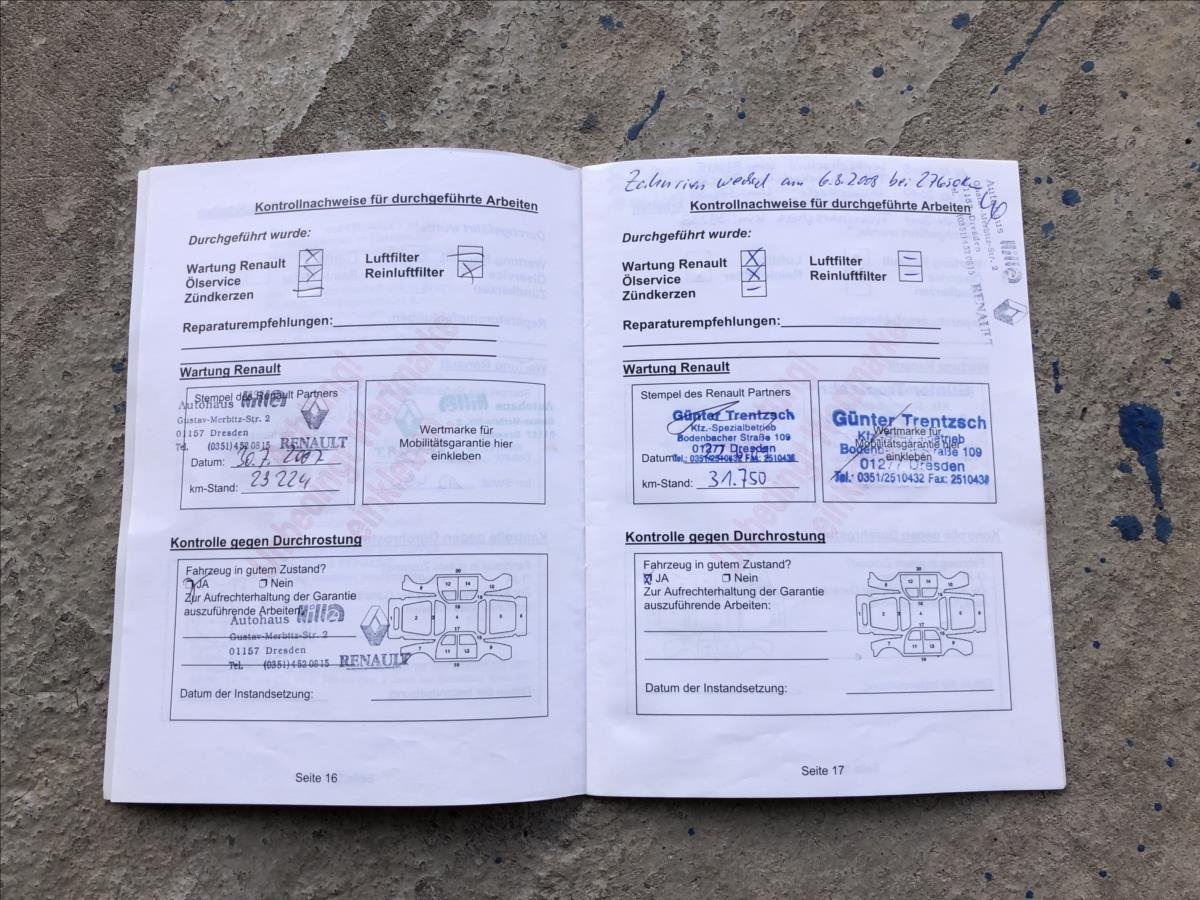 Kontrollnachweise für durchgeführte Arbeiten
Durchgeführt wurde:
Wartung Renault
Ölservice
Zündkerzen
Luftfilter
Reinluftfilter
Reparaturempfehlungen:
Wartung Renault
Stempel des Renault Partners
Autohaus Hilla
Gustav-Merbitz-Str. 2
01157 Dresden
Tel. (0351) 4 52 08 15 RENAULT
Datum: 30.7. 2007
km-Stand: 23 224
Wertmarke für
Mobilitätsgarantie hier
einkleben
Kontrolle gegen Durchrostung
Fahrzeug in gutem Zustand?
JA Nein
Zur Aufrechterhaltung der Garantie
auszuführende Arbeiten:
Autohaus Hilla
Gustav-Merbitz-Str. 2
01157 Dresden
Tel. (0351) 4 52 08 15 RENAULT
Datum der Instandsetzung:
Seite 16
Zahnriemenwechsel am 6.8.2008 bei
Kontrollnachweise für durchgeführte Arbeiten
Durchgeführt wurde:
Wartung Renault
Ölservice
Zündkerzen
Luftfilter
Reinluftfilter
Autohaus Hilla
Gustav-Merbitz-Str. 2
01157 Dresden
Tel. (0351) 4 52 08 15 RENAULT
Reparaturempfehlungen:
Wartung Renault
Stempel des Renault Partners
Günter Trentzsch
Kfz.-Spezialbetrieb
Bodenbacher Straße 109
01277 Dresden
Datum: Tel.: 0351/2510432 Fax: 2510438
km-Stand: 31.750
Günter Trentzsch
Wertmarke für
Mobilitätsgarantie hier
einkleben
01277 Dresden
Tel.: 0351/2510432 Fax: 2510438
Kontrolle gegen Durchrostung
Fahrzeug in gutem Zustand?
JA Nein
Zur Aufrechterhaltung der Garantie
auszuführende Arbeiten:
Datum der Instandsetzung:
Seite 17